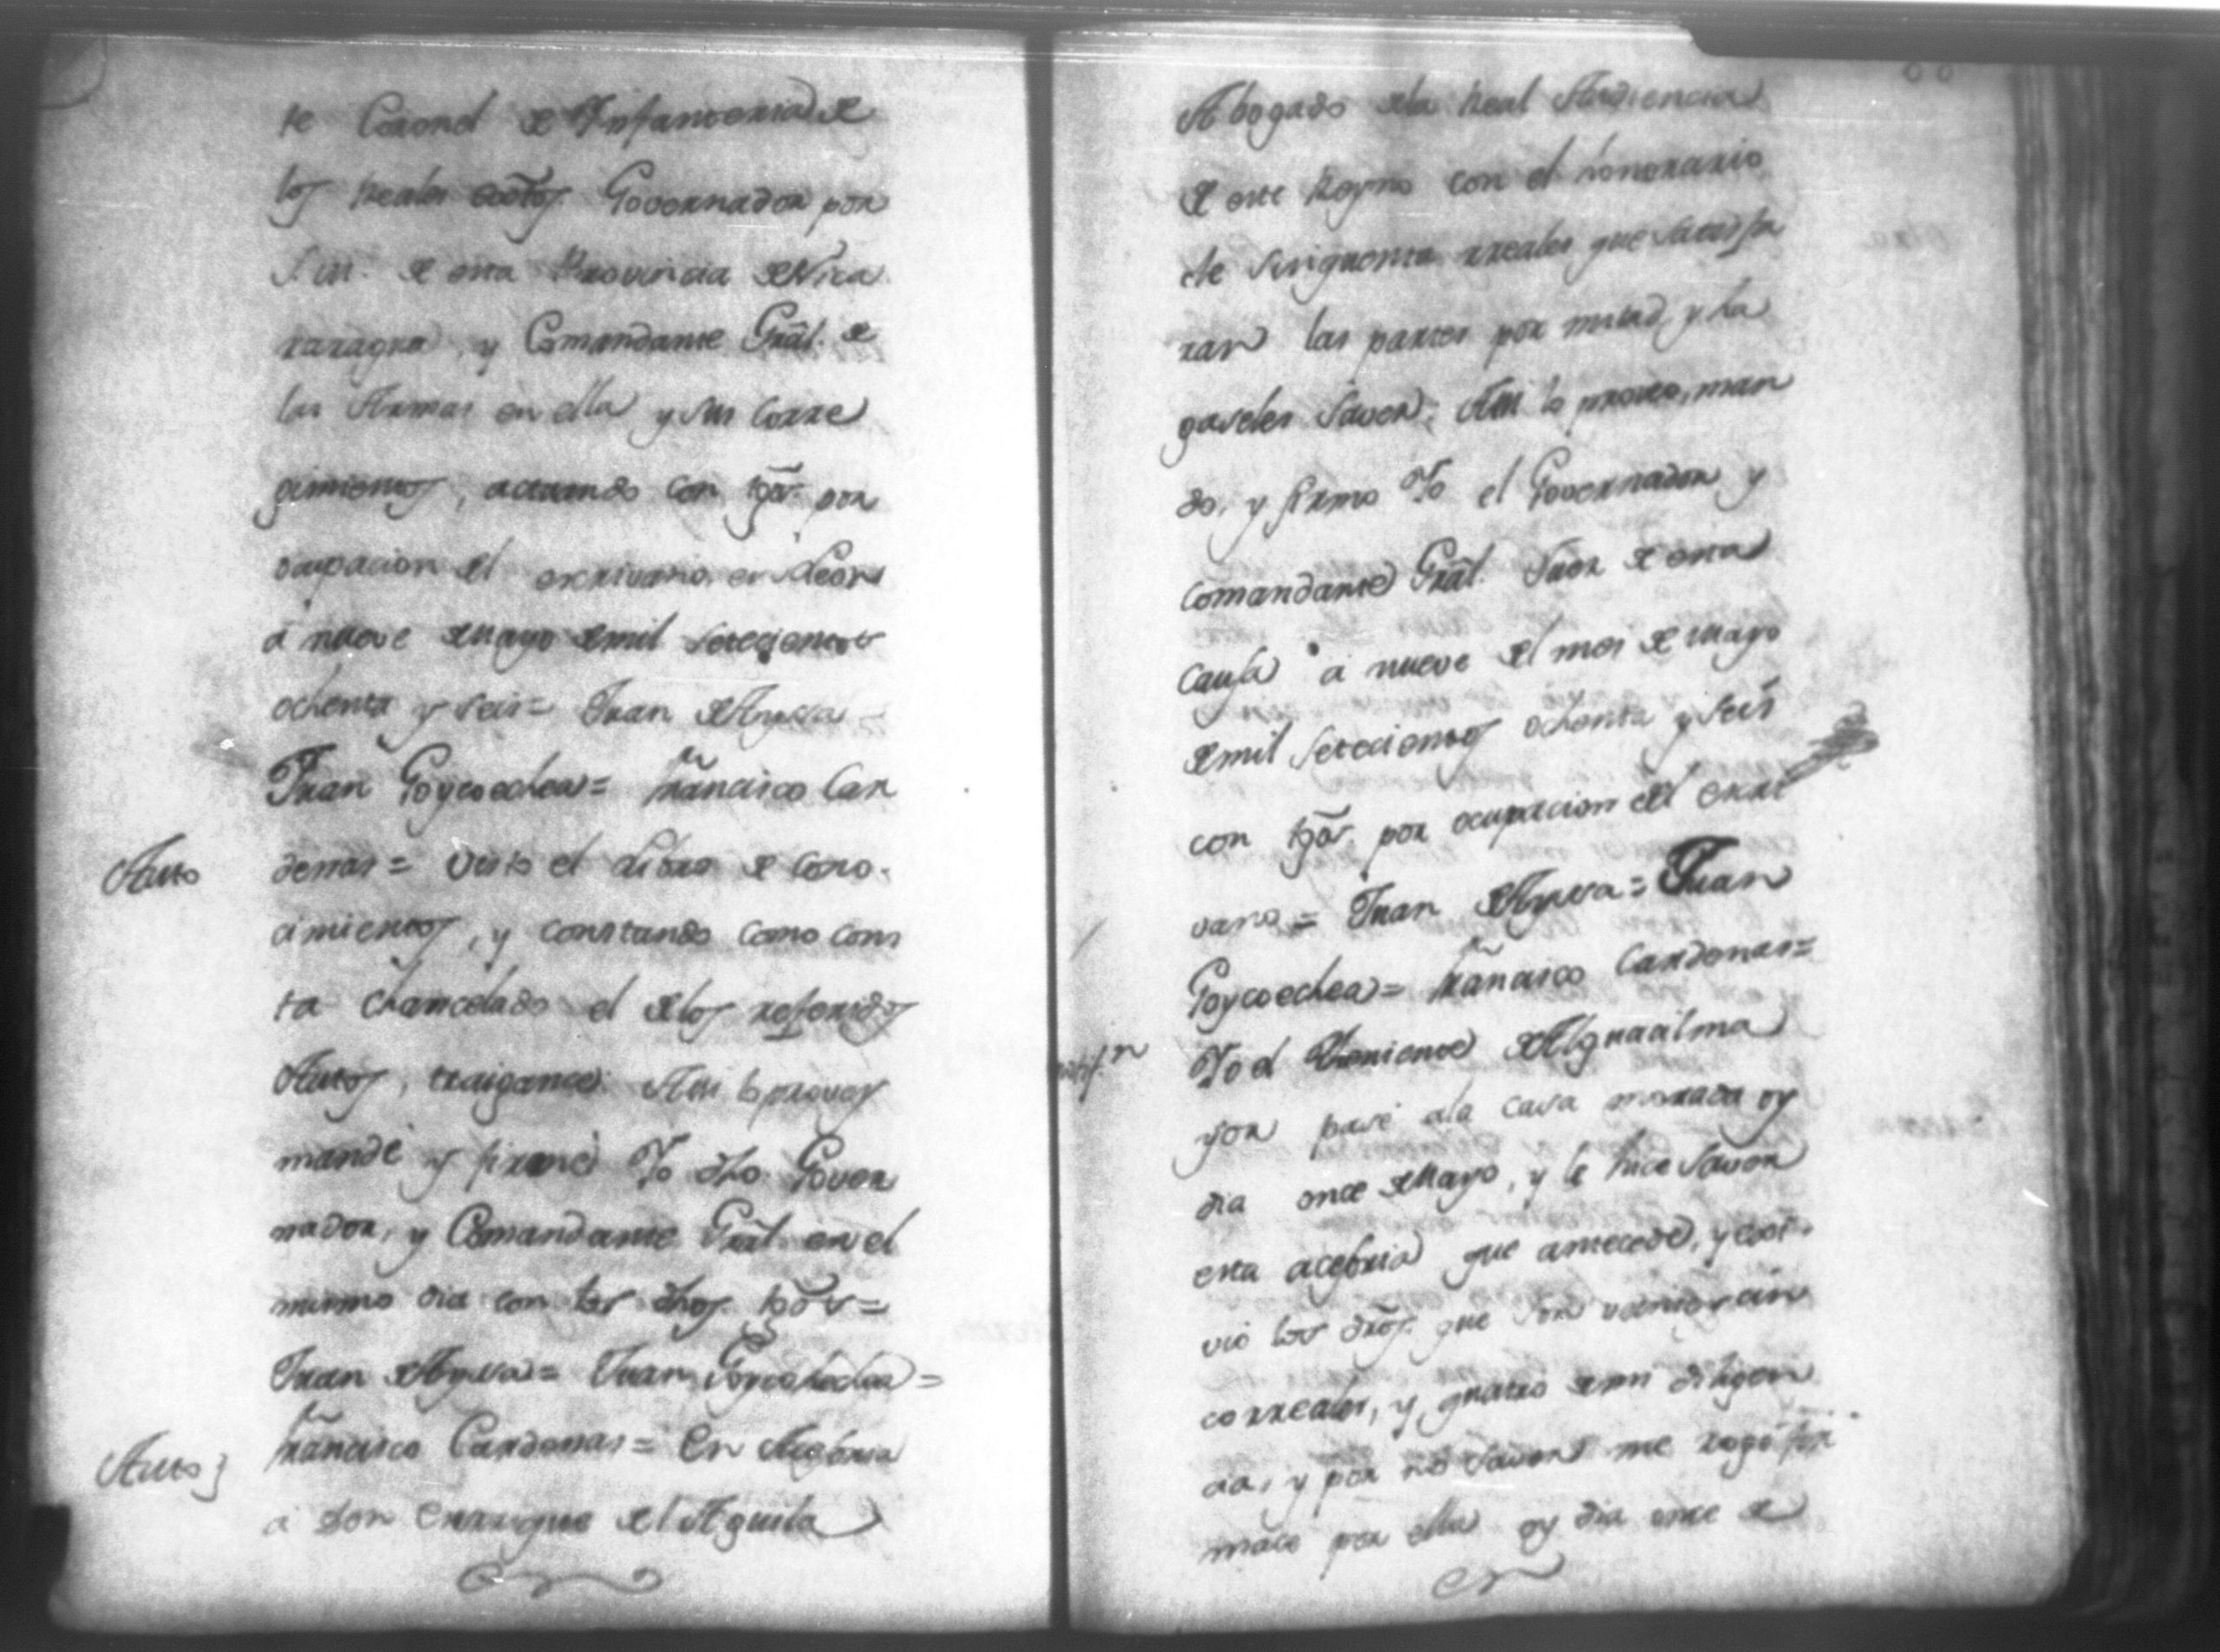 te Coronel de Infanteria de
los Reales exẽtos. Governador por
S. M. de esta Provincia de Nica
raragua, y Comandante Grãl. de
las Armas en ella y sus Corre
gimientos, actuando con tg̃os. por
ocupacion del escrivano. en Leon
á nueve de Mayo de mil setecientos
ochenta y seis = Juan de Ayssa =
Juan Goycoechea = Frañcisco Car
Auto
denas = Visto el Libro de Cono.
cimientos, y constando como cons
ta chancelado el de los referidos
Autos, traigance. Assi lo provey
mandé y firmé Yo dho. Gover
nador, y Comandante Grãl. en el
mismo dia con los dhos. tg̃os =
Juan de Ayssa = Juan Goycochechea =
Frañcisco Cardenas = En Acesoria
Auto
a Don Enrrique del Aguila
Abogado de la Real Audiencia
de este Reyno con el honorario
de sinquenta rreales que satisfa
ran las partes por mitad, y ha
gaseles saver. Assi lo proveo, man
do, y firmo Yo el Governador y
Comandante Grãl. Juez de esta
Causa á nueve del mes de Mayo
de mil setecientos ochenta y seis
con tg̃os. por ocupacion del escri
vano = Juan de Ayssa = Juan
Goycoechea = Frañcisco Cardenas =
Yo el Theniente de Alguacil ma
yor pasé a la casa morada oy
dia once de Mayo, y le hice saver
esta acesoria que antecede, y exsi.
vió los dr̃os. que son veinte y cin
co rreales, y quatro de mi diligen
cia, y por no saver me rogó fir
mace por ella oy dia once de